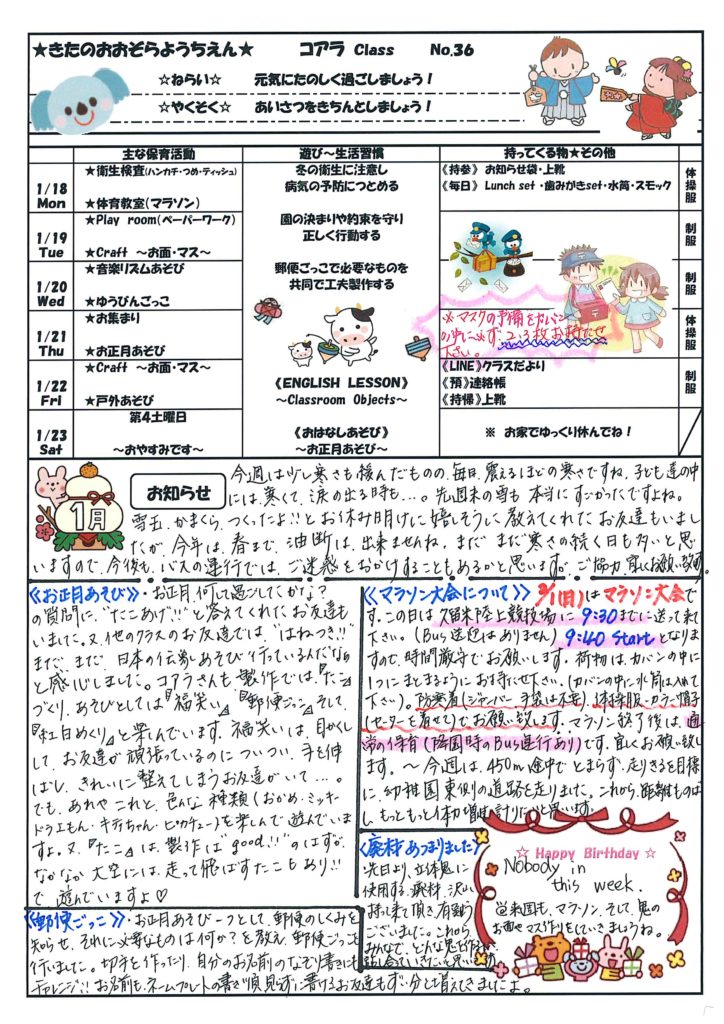 ★きたのおおぞらようちえん★ コアラ Class No.36
☆ねらい☆ 元気にたのしく過ごしましょう！
☆やくそく☆ あいさつをきちんとしましょう！
主な保育活動 遊び～生活習慣 持ってくる物★その他
1/18 Mon
★衛生検査(ハンカチ・つめ・ティッシュ)
★体育教室(マラソン)
1/19 Tue
★Play room(ペーパーワーク)
★Craft ～お面・マス～
1/20 Wed
★音楽リズムあそび
★ゆうびんごっこ
1/21 Thu
★お集まり
★お正月あそび
1/22 Fri
★Craft ～お面・マス～
★戸外あそび
1/23 Sat
第4土曜日
～おやすみです～
冬の衛生に注意し
病気の予防につとめる
園の決まりや約束を守り
正しく行動する
郵便ごっこで必要なものを
共同で工夫製作する
《ENGLISH LESSON》
～Classroom Objects～
《おはなしあそび》
～お正月あそび～
《持参》 お知らせ袋・上靴
《毎日》 Lunch set ・歯みがきset・水筒・スモック
※マスクの予備をカバン
の中に必ず2、3枚お持たせ
下さい。
《LINE》クラスだより
《預》連絡帳
《持帰》上靴
※ お家でゆっくり休んでね！
体操服
制服
制服
体操服
制服
1月
お知らせ
今週は少し寒さも緩んだものの、毎日、震えるほどの寒さですね。子ども達の中
には、寒くて、涙の出る時も…。先週末の雪も本当にすごかったですよね。
雪玉、かまくら、つくったよ!!とお休み明けに嬉しそうに教えてくれたお友達もいまし
たが、今年は、春まで、油断は、出来ませんね。まだまだ寒さの続く日も多いと思
いますので、今後も、バスの運行では、ご迷惑をおかけすることもあるかと思いますが、ご協力、宜しくお願い致します。
《お正月あそび》・お正月、何して過ごしてたかな？
の質問に、“たこあげ!!”と答えてくれたお友達も
いました。又、他のクラスのお友達では、“はねつき!!”
まだ、まだ、日本の伝承あそび行っているんだな
と感心しました。コアラさんも製作では、『たこ』
づくり、あそびとしては『福笑い』『郵便ごっこ』そして、
『紅白めくり』と楽しんでいます。福笑いは、目かくし
して、お友達が頑張っているのについつい、手を伸
ばし、きれいに整えてしまうお友達がいて…。
でも、あれやこれと、色んな種類(おかめ・ミッキー
ドラえもん・キティちゃん・ピカチュー)を楽しんで遊んでいま
すよ。又、『たこ』は、製作は“good!!”のはずが、
なかなか大空には、走って飛ばすたこもあり!!
で遊んでいますよ♡
《マラソン大会について》 2/1(日)はマラソン大会で
す。この日は久留米陸上競技場に9:30までに送って来て
下さい。(Bus送迎はありません) 9:40 Startとなりま
すので、時間厳守でお願いします。荷物は、カバンの中に
1つにまとまるようにお持たせ下さい。(カバンの中に水筒は入れて
下さい)。防寒着(ジャンバー、手袋は不要)、体操服・カラー帽子
(セーターを着せて)でお願い致します。マラソン終了後は、通
常の保育(降園時のBus運行あり)です。宜しくお願い致し
ます。～今週は、450m途中でとまらず、走りきるを目標
に、幼稚園東側の道路を走りました。これから、距離ものば
し、もっともっと体力増進計りたいと思います。
《廃材あつまりました》
先日より、立体鬼に
使用する、廃材、沢山
持って来て頂き、有難う
ございました。これから、
みんなで、どんな鬼を作るか
話し合っていきたいと思います。
☆ Happy Birthday ☆
Nobody in
this week.
来週も、マラソン、そして、鬼の
お面やマス作りをしていきましょうね。
《郵便ごっこ》・お正月あそび一つとして、郵便のしくみを
知らせ、それに必要なものは何か？を教え、郵便ごっこを
行いました。切手を作ったり、自分のお名前のなぞり書きにも
チャレンジ!!お名前も、ネームプレートの書き順見ずに書けるお友達もずい分と増えてきましたよ。